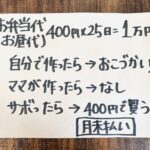 お弁当代
(お昼代) 400円×25日=1万円
自分で作ったら→おこづかい!
ママが作ったら→なし
サボったら→400円で買う
月末払い